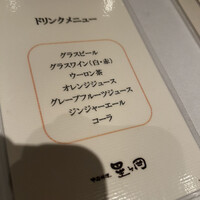 ドリンクメニュー
グラスビール
グラスワイン(白・赤)
ウーロン茶
オレンジジュース
グレープフルーツジュース
ジンジャーエール
コーラ